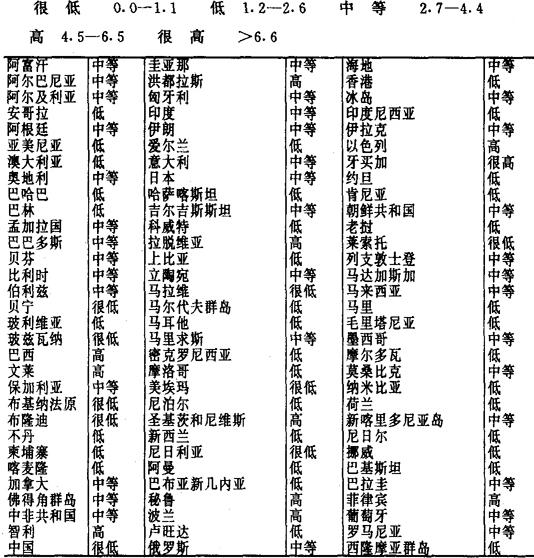 很低 0.0—1.1 低 1.2—2.6 中等 2.7—4.4
高 4.5—6.5 很高 >6.6
阿富汗 中等 圭亚那 中等 海地 中等
阿尔巴尼亚 中等 洪都拉斯 高 香港 低
阿尔及利亚 中等 匈牙利 中等 冰岛 中等
安哥拉 低 印度 中等 印度尼西亚 低
阿根廷 中等 伊朗 中等 伊拉克 中等
亚美尼亚 低 爱尔兰 低 以色列 高
澳大利亚 低 意大利 中等 牙买加 很高
奥地利 中等 日本 中等 约旦 低
巴哈巴 低 哈萨喀斯斯坦 低 肯尼亚 低
巴林 低 吉尔吉斯斯坦 中等 朝鲜共和国 中等
孟加拉国 中等 科威特 低 老挝 低
巴巴多斯 中等 拉脱维亚 高 莱索托 很低
贝芬 中等 上比亚 低 列支敦士登 中等
比利时 中等 立陶宛 中等 马达加斯加 中等
伯利兹 中等 马拉维 很低 马来西亚 中等
贝宁 很低 马尔代夫群岛 低 马里 低
玻利维亚 低 马耳他 低 毛里塔尼亚 低
茨兹瓦纳 很低 马里求斯 中等 墨西哥 中等
巴西 高 密克罗尼西亚 低 摩尔多瓦 低
文莱 高 摩洛哥 低 莫桑比克 中等
保加利亚 中等 美埃玛 很低 纳米比亚 低
布基纳法原 很低 尼泊尔 低 荷兰 低
布隆迪 很低 圣基茨和尼维斯 高 新喀里多尼亚岛 中等
不丹 低 新西兰 低 尼日尔 低
柬埔寨 低 尼日利亚 很低 挪威 低
喀麦隆 低 阿曼 低 巴基斯坦 低
加拿大 中等 巴布亚新几内亚 低 巴拉圭 中等
佛得角群岛 中等 秘鲁 高 菲律宾 高
中非共和国 中等 波兰 高 葡萄牙 中等
智利 高 卢旺达 低 罗马尼亚 中等
中国 很低 俄罗斯 中等 西隆摩亚群岛 低